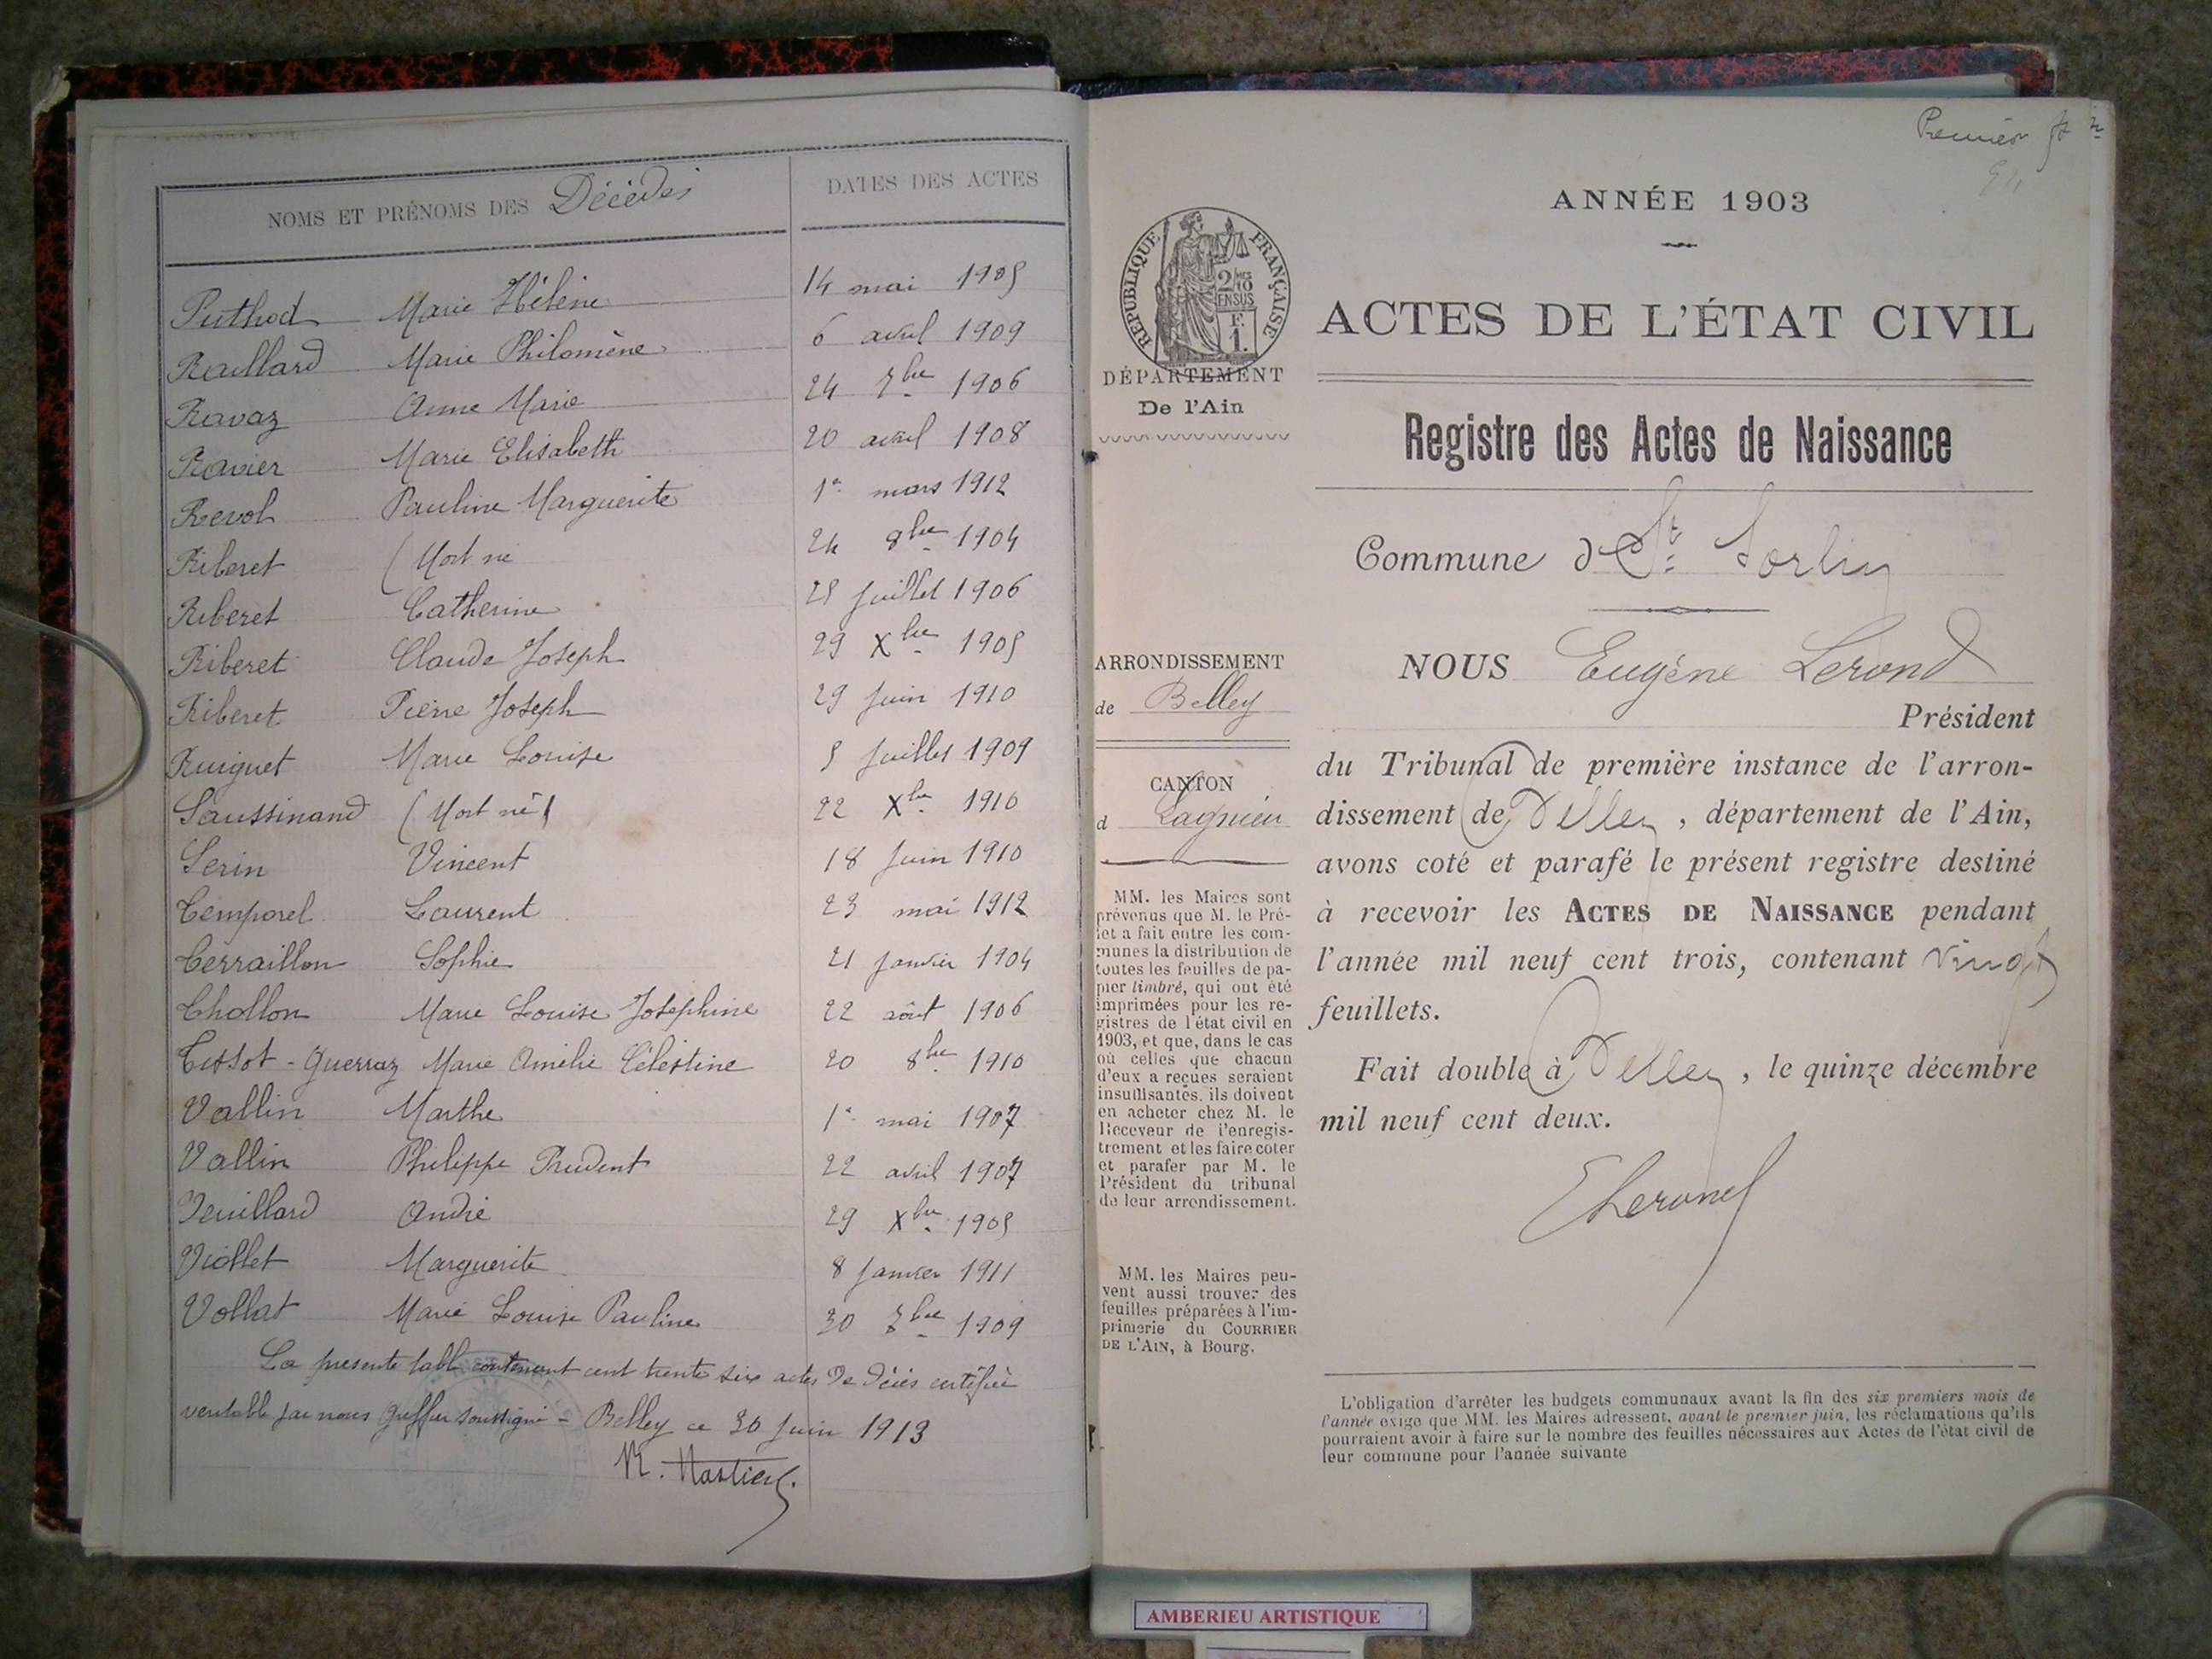 NOMS ET PRÉNOMS DES Décédés DATES DES ACTES
Puthod Marie Hélène 14 mai 1905
Raillard Marie Philomène 6 avril 1909
Ravaz Anne Marie 24 7bre 1906
Ravier Marie Elisabeth 20 avril 1908
Revol Pauline Marguerite 1er mars 1912
Riberet (Mort né 24 8bre 1904
Riberet Catherine 25 Juillet 1906
Riberet Claude Joseph 29 Xbre 1905
Riberet Pierre Joseph 29 Juin 1910
Ruiguet Marie Louise 5 Juillet 1909
Saussinand (Mort né) 22 Xbre 1910
Serin Vincent 18 Juin 1910
Temporel Laurent 23 mai 1912
Terraillon Sophie 21 Janvier 1904
Thollon Marie Louise Joséphine 22 août 1906
Tissot-Guerraz Marie Amélie Célestine 20 8bre 1910
Vallin Marthe 1er mai 1907
Vallin Philippe Prudent 22 avril 1907
Veuillard André 29 Xbre 1905
Viollet Marguerite 8 Janvier 1911
Vollat Marie Louise Pauline 30 7bre 1909
La présente table contenant cent trente six actes de décès certifiée
véritable par nous Greffier soussigné - Belley ce 30 Juin 1913
Premier
ANNÉE 1903
RÉPUBLIQUE FRANÇAISE
2/10
EN SUS
F.
1.
ACTES DE L'ÉTAT CIVIL
DÉPARTEMENT
De l'Ain
Registre des Actes de Naissance
Commune d St Sorlin
ARRONDISSEMENT
de Belley
CANTON
d Lagnieu
MM. les Maires sont
prévenus que M. le Pré-
fet a fait entre les com-
munes la distribution de
toutes les feuilles de pa-
pier timbré, qui ont été
imprimées pour les re-
gistres de l'état civil en
1903, et que, dans le cas
où celles que chacun
d'eux a reçues seraient
insuffisantes, ils doivent
en acheter chez M. le
Receveur de l'enregis-
trement et les faire coter
et parafer par M. le
Président du tribunal
de leur arrondissement.
MM. les Maires peu-
vent aussi trouver des
feuilles préparées à l'im-
primerie du COURRIER
DE L'AIN, à Bourg.
NOUS Eugène Lerond
Président
du Tribunal de première instance de l'arron-
dissement de Belley, département de l'Ain,
avons coté et parafé le présent registre destiné
à recevoir les ACTES DE NAISSANCE pendant
l'année mil neuf cent trois, contenant vingt
feuillets.
Fait double à Belley, le quinze décembre
mil neuf cent deux.
E Lerond
L'obligation d'arrêter les budgets communaux avant la fin des six premiers mois de
l'année exige que MM. les Maires adressent, avant le premier juin, les réclamations qu'ils
pourraient avoir à faire sur le nombre des feuilles nécessaires aux Actes de l'état civil de
leur commune pour l'année suivante
AMBERIEU ARTISTIQUE